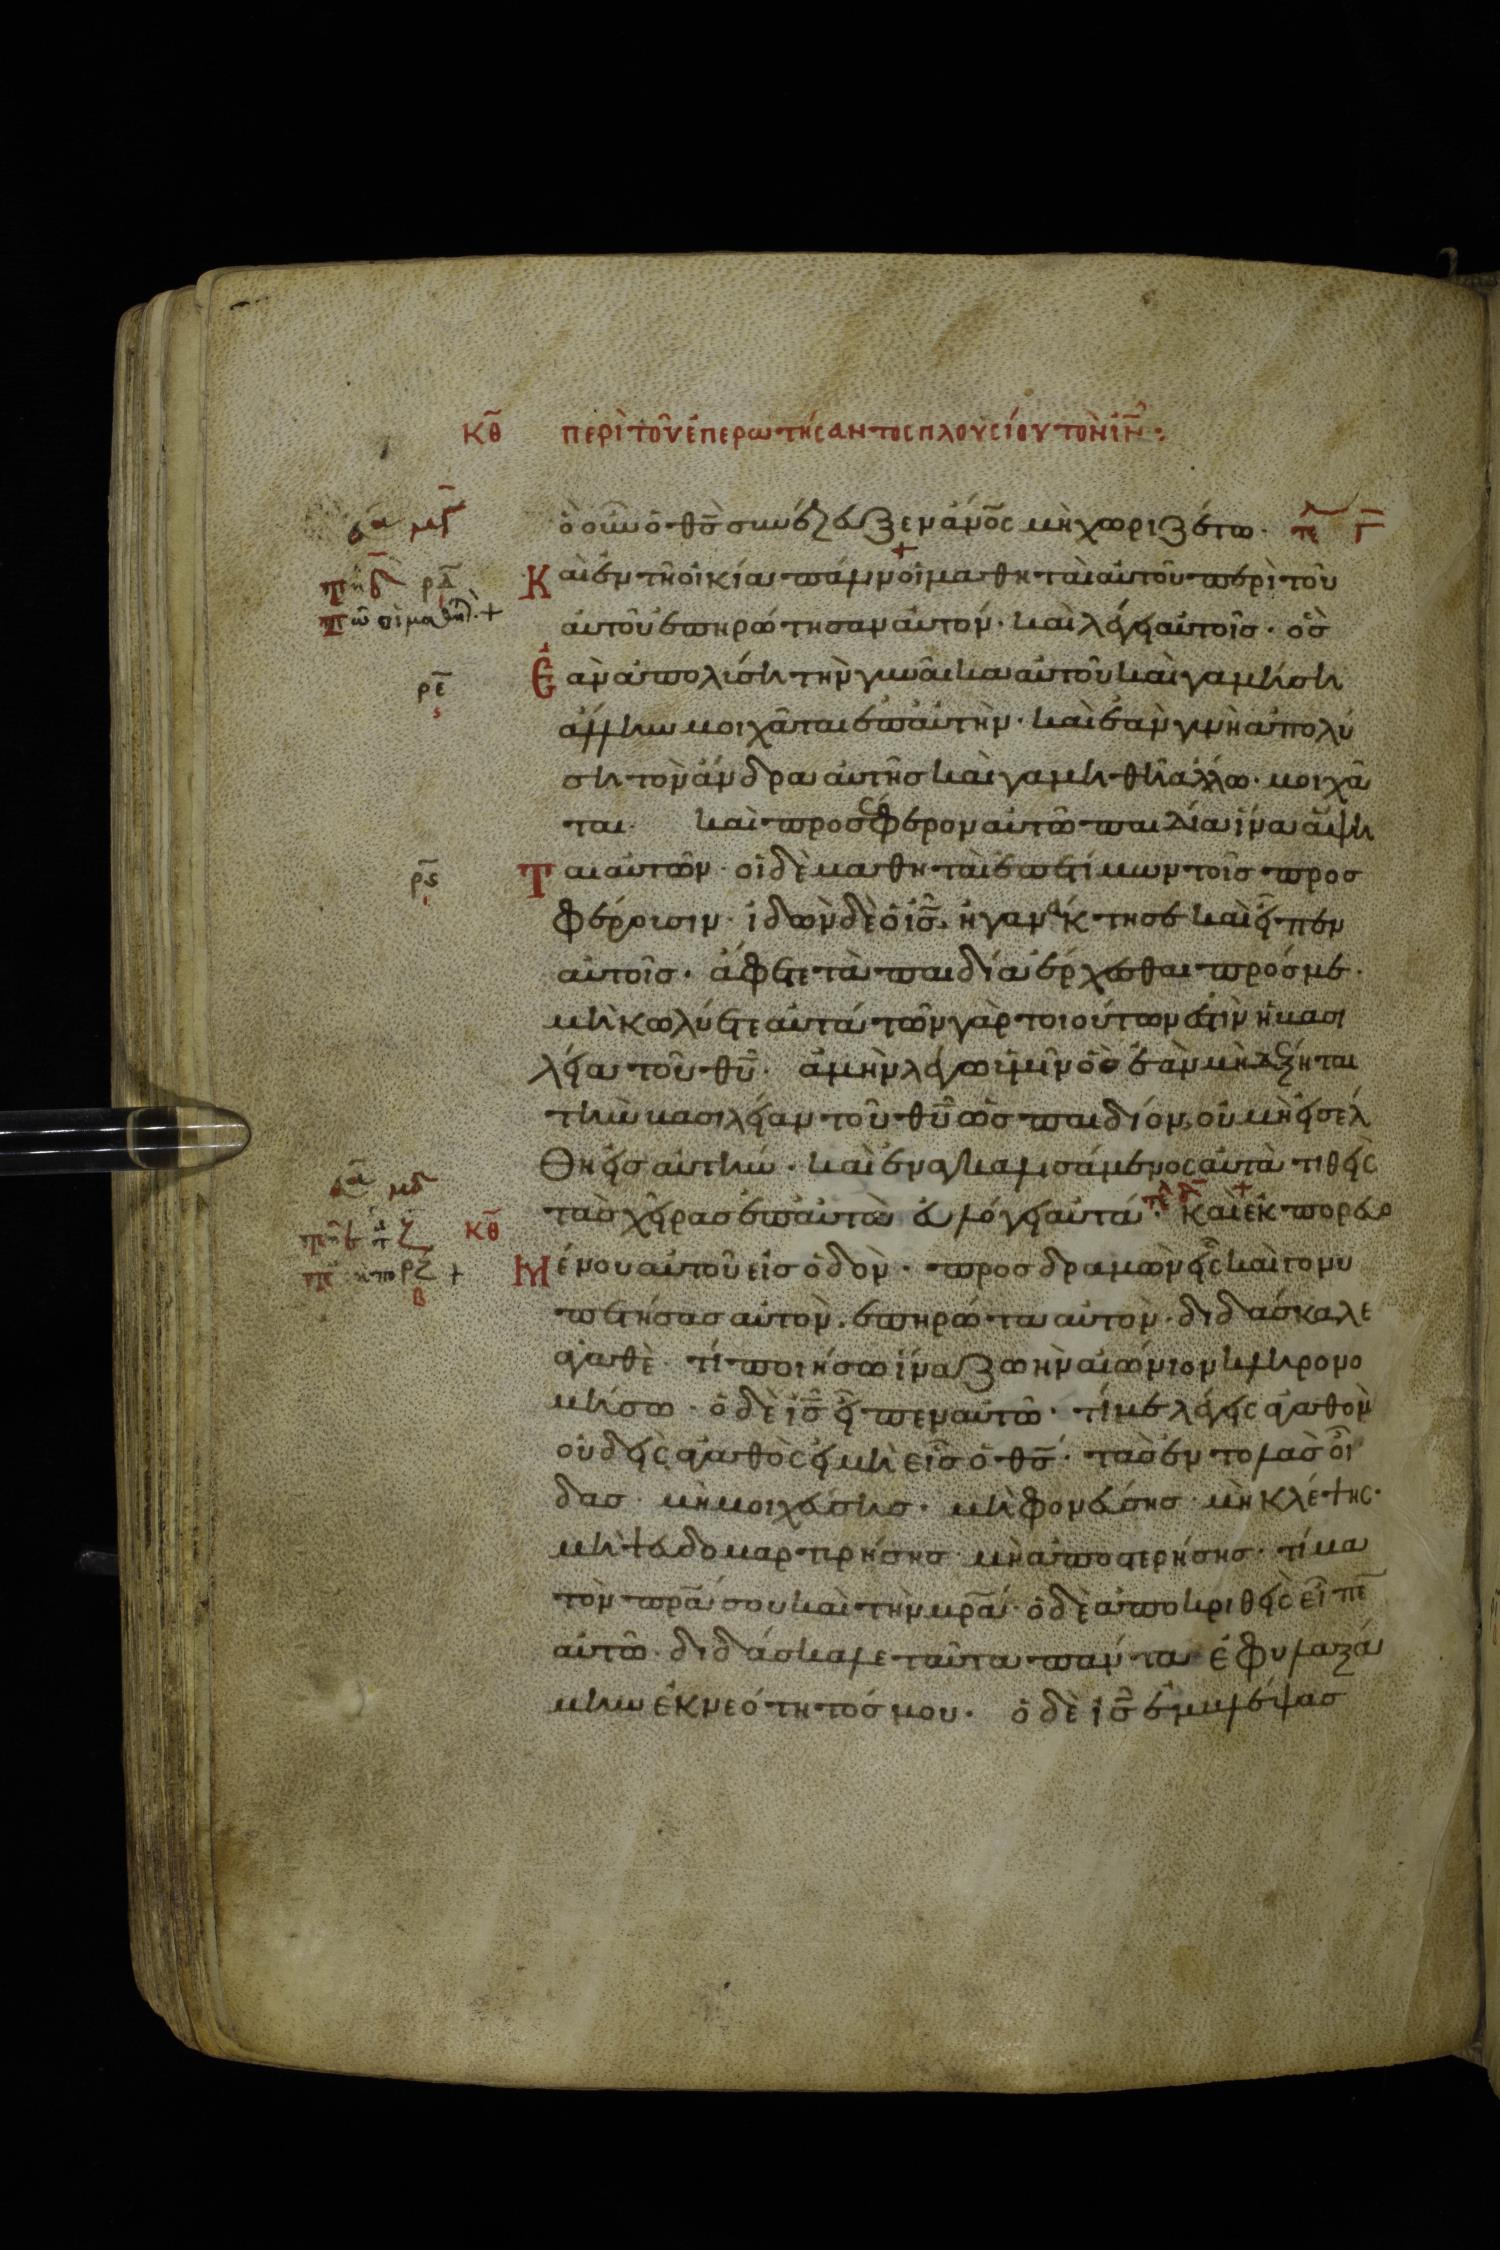 κθ περὶ τοῦ ἐπερωτήσαντος πλουσίου τὸν ιν̅:
ὃ οὖν ὁ θς̅ συνέζευξεν ἄνο̅ς μὴ χωριζέτω.
Καὶ ἐν τῆ οἰκία πάλιν οἱ μαθηταὶ αὐτοῦ περὶ τοῦ
αὐτοῦ ἐπηρώτησαν αὐτόν. καὶ λέγει αὐτοῖς. ὃς
Ἐὰν ἀπολύση τὴν γυναῖκα αὐτοῦ καὶ γαμήση
ἄλλην μοιχᾶται ἐπ αὐτὴν. καὶ ἐὰν γυνὴ ἀπολύ
ση τὸν ἄνδρα αὐτῆς καὶ γαμηθῆ ἄλλω. μοιχᾶ
ται. καὶ προσέφερον αὐτῶ παιδία ἵνα ἅψη
Ται αὐτῶν. οἱ δὲ μαθηταὶ ἐπετίμων τοῖς προσ
φέρουσιν. ἰδὼν δὲ ὁ ις̅. ἠγανάκτησε καὶ εἶπεν
αὐτοῖς. ἄφετε τὰ παιδία ἔρχεσθαι πρός με.
μὴ κωλύετε αὐτά. τῶν γὰρ τοιούτων ἐστὶν ἡ βασι
λεία τοῦ θυ̅. ἀμὴν λέγω ὑμῖν ὃς ἐὰν μὴ δέξηται
τὴν βασιλείαν τοῦ θυ̅ ὡς παιδίον, οὐ μὴ εἰσέλ
Θη εἰς αὐτήν. καὶ ἐναγκαλισάμενος αὐτὰ τιθεὶς
τὰς χεῖρας ἐπ αὐτὰ εὐλόγει αὐτά. Καὶ ἐκπορευο
κθ Μένου αὐτοῦ εἰς ὁδὸν. προσδραμὼν εἷς καὶ γονυ
πετήσας αὐτὸν. ἐπηρώτα αὐτὸν. διδάσκαλε
ἀγαθὲ τί ποιήσω ἵνα ζωὴν αἰώνιον κληρονο
μήσω. ὁ δὲ ις̅ εἶπεν αὐτῶ. τί με λέγεις ἀγαθὸν
οὐδεὶς ἀγαθὸς εἰ μὴ εἷς ὁ θς̅. τὰς ἐντολὰς οἶ
δας. μὴ μοιχεύσης. μὴ φονεύσης. μὴ κλέψης.
μὴ ψευδομαρτυρήσης. μὴ ἀποστερήσης. τίμα
τὸν πρα̅ σου καὶ τὴν μρα̅. ὁ δὲ ἀποκριθεὶς εἶπε̅
αὐτῶ. διδάσκαλε ταῦτα πάντα ἐφυλαξά
μην ἐκ νεότητός μου. ὁ δὲ ις̅ ἐμβλέψας